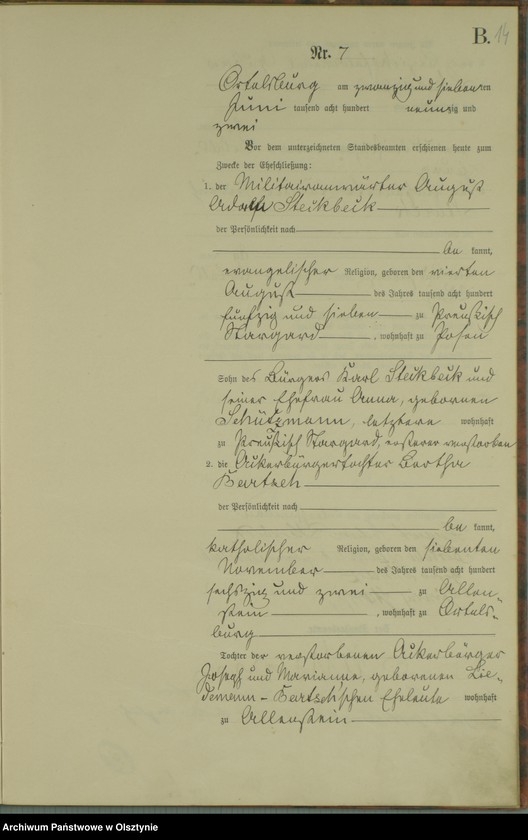 B. 14
Nr. 7
Ortelsburg am zwanzig und siebenten
Juni tausend acht hundert neunzig und
zwei
Vor dem unterzeichneten Standesbeamten erschienen heute zum
Zwecke der Eheschließung:
1. der Militairanwärter August
Adolf Steckbeck
der Persönlichkeit nach
be kannt,
evangelischer Religion, geboren den vierten
August des Jahres tausend acht hundert
fünfzig und sieben zu Preußisch
Stargard, wohnhaft zu Posen
Sohn des Bürgers Karl Steckbeck und
seiner Ehefrau Anna, geborenen
Schützmann, letztere wohnhaft
zu Preußisch Stargard, ersterer verstorben
2. die Ackerbürgertochter Bertha
Bartsch
der Persönlichkeit nach
be kannt,
katholischer Religion, geboren den siebenten
November des Jahres tausend acht hundert
sechszig und zwei zu Allen-
stein, wohnhaft zu Ortels-
burg
Tochter der verstorbenen Ackerbürger
Joseph und Marianne, geborenen Lie-
demann - Bartsch'schen Eheleute wohnhaft
zu Allenstein
Archiwum Państwowe w Olsztynie